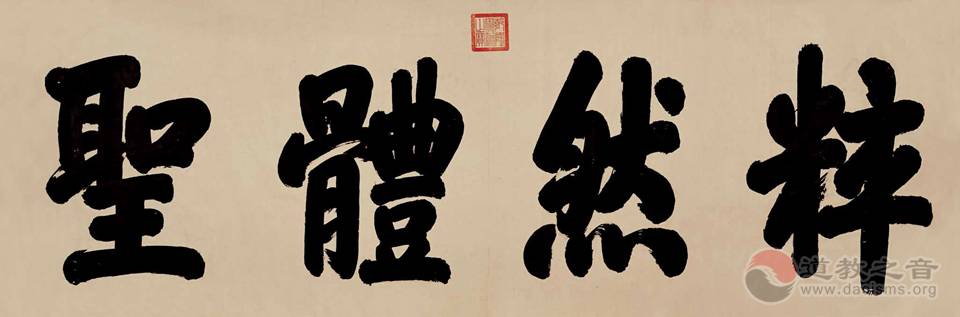 粹然體聖
道教之音
www.daoisms.org